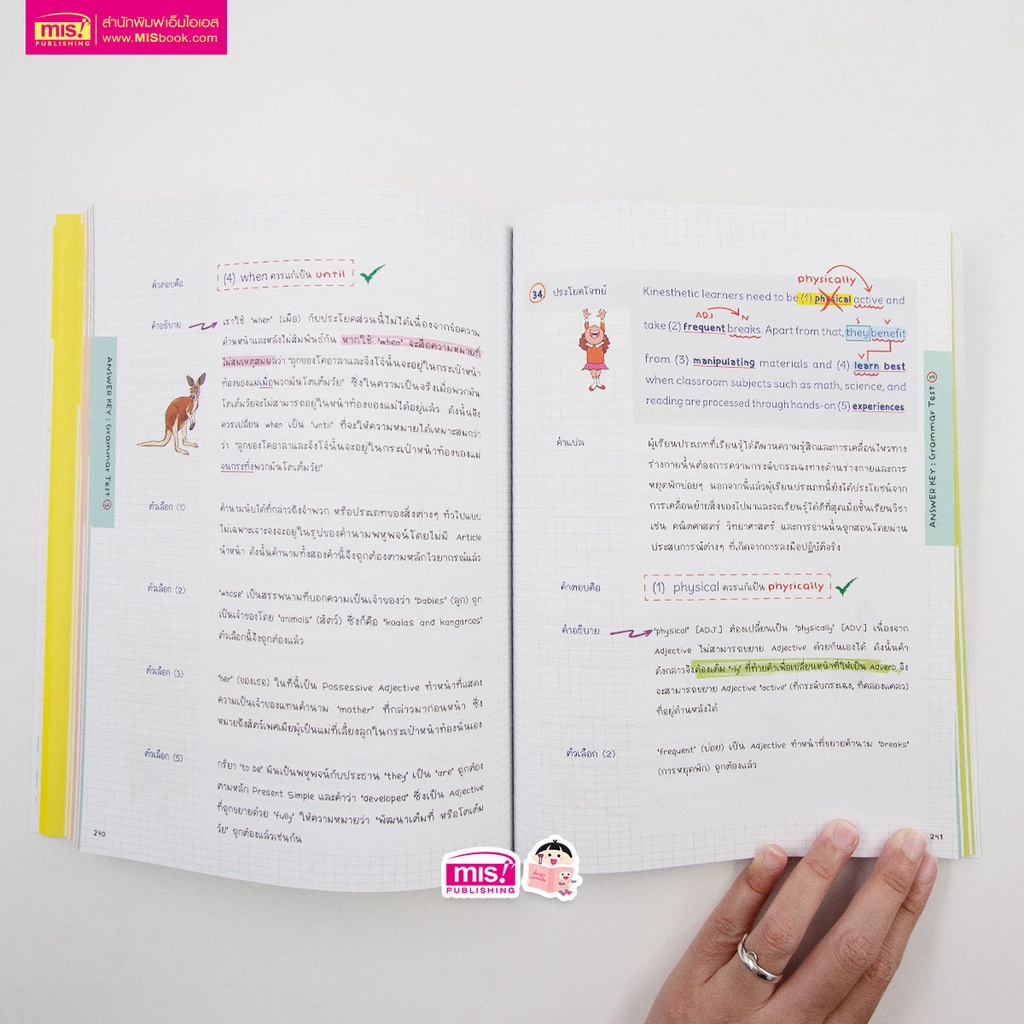 mis!
PUBLISHING
สำนักพิมพ์เอ็มไอเอส
www.MISbook.com
คำตอบคือ (4) when ควรแก้เป็น until
คำอธิบาย เราใช้ "when" (เมื่อ) กับประโยคส่วนนี้ไม่ได้เนื่องจากข้อความ
ด้านหน้าและหลังไม่สัมพันธ์กัน หากใช้ "when" จะสื่อความหมายที่
ไม่สมเหตุสมผลว่า "ลูกของโคอาลาและจิงโจ้นั้นจะอยู่ในกระเป๋าหน้า
ท้องของแม่เมื่อพวกมันโตเต็มวัย" ซึ่งในความเป็นจริงเมื่อพวกมัน
โตเต็มวัยจะไม่สามารถอยู่ในหน้าท้องของแม่ได้อยู่แล้ว ดังนั้นจึง
ควรเปลี่ยน when เป็น "until" ที่จะให้ความหมายได้เหมาะสมกว่า
ว่า "ลูกของโคอาลาและจิงโจ้นั้นจะอยู่ในกระเป๋าหน้าท้องของแม่
จนกระทั่งพวกมันโตเต็มวัย"
ตัวเลือก (1) คำนามนับได้ที่กล่าวถึงจำพวก หรือประเภทของสิ่งต่างๆ ทั่วไปแบบ
ไม่เฉพาะเจาะจงจะอยู่ในรูปของคำนามพหูพจน์โดยไม่มี Article
นำหน้า ดังนั้นคำนามทั้งสองคำนี้จึงถูกต้องตามหลักไวยากรณ์แล้ว
ตัวเลือก (2) "whose" เป็นสรรพนามที่บอกความเป็นเจ้าของว่า "babies" (ลูก) ถูก
เป็นเจ้าของโดย "animals" (สัตว์) ซึ่งก็คือ "koalas and kangaroos"
ตัวเลือกนี้จึงถูกต้องแล้ว
ตัวเลือก (3) "her" (ของเธอ) ในที่นี้เป็น Possessive Adjective ทำหน้าที่แสดง
ความเป็นเจ้าของแทนคำนาม "mother" ที่กล่าวมาก่อนหน้า ซึ่ง
หมายถึงสัตว์เพศเมียผู้เป็นแม่ที่เลี้ยงลูกในกระเป๋าหน้าท้องนั่นเอง
ตัวเลือก (5) กริยา "to be" ผันเป็นพหูพจน์กับประธาน "they" เป็น "are" ถูกต้อง
ตามหลัก Present Simple และคำว่า "developed" ซึ่งเป็น Adjective
ที่ถูกขยายด้วย "fully" ให้ความหมายว่า "พัฒนาเต็มที่ หรือโตเต็ม
วัย" ถูกต้องแล้วเช่นกัน
240
ANSWER KEY : Grammar Test 3
physically
34. ประโยคโจทย์ Kinesthetic learners need to be (1) physical active and
ADJ N S V
take (2) frequent breaks. Apart from that, they benefit
V
from (3) manipulating materials and (4) learn best
when classroom subjects such as math, science, and
reading are processed through hands-on (5) experiences.
คำแปล ผู้เรียนประเภทที่เรียนรู้ได้ดีผ่านความรู้สึกและการเคลื่อนไหวทาง
ร่างกายนั้นต้องการความกระฉับกระเฉงทางด้านร่างกายและการ
หยุดพักบ่อยๆ นอกจากนี้แล้วผู้เรียนประเภทนี้ยังได้ประโยชน์จาก
การเคลื่อนย้ายสิ่งของไปมาและจะเรียนรู้ได้ดีที่สุดเมื่อชั้นเรียนวิชา
เช่น คณิตศาสตร์ วิทยาศาสตร์ และการอ่านนั้นถูกสอนโดยผ่าน
ประสบการณ์ต่างๆ ที่เกิดจากการลงมือปฏิบัติจริง
คำตอบคือ (1) physical ควรแก้เป็น physically
คำอธิบาย "physical" [ADJ.] ต้องเปลี่ยนเป็น "physically" [ADV.] เนื่องจาก
Adjective ไม่สามารถขยาย Adjective ด้วยกันเองได้ ดังนั้นคำ
ดังกล่าวจึงต้องเติม "-ly" ที่ท้ายคำเพื่อเปลี่ยนหน้าที่ให้เป็น Adverb จึง
จะสามารถขยาย Adjective "active" (ที่กระฉับกระเฉง, ที่คล่องแคล่ว)
ที่อยู่ด้านหลังได้
ตัวเลือก (2) "frequent" (บ่อย) เป็น Adjective ทำหน้าที่ขยายคำนาม "breaks"
(การหยุดพัก) ถูกต้องแล้ว
241
ANSWER KEY : Grammar Test 3
mis!
PUBLISHING